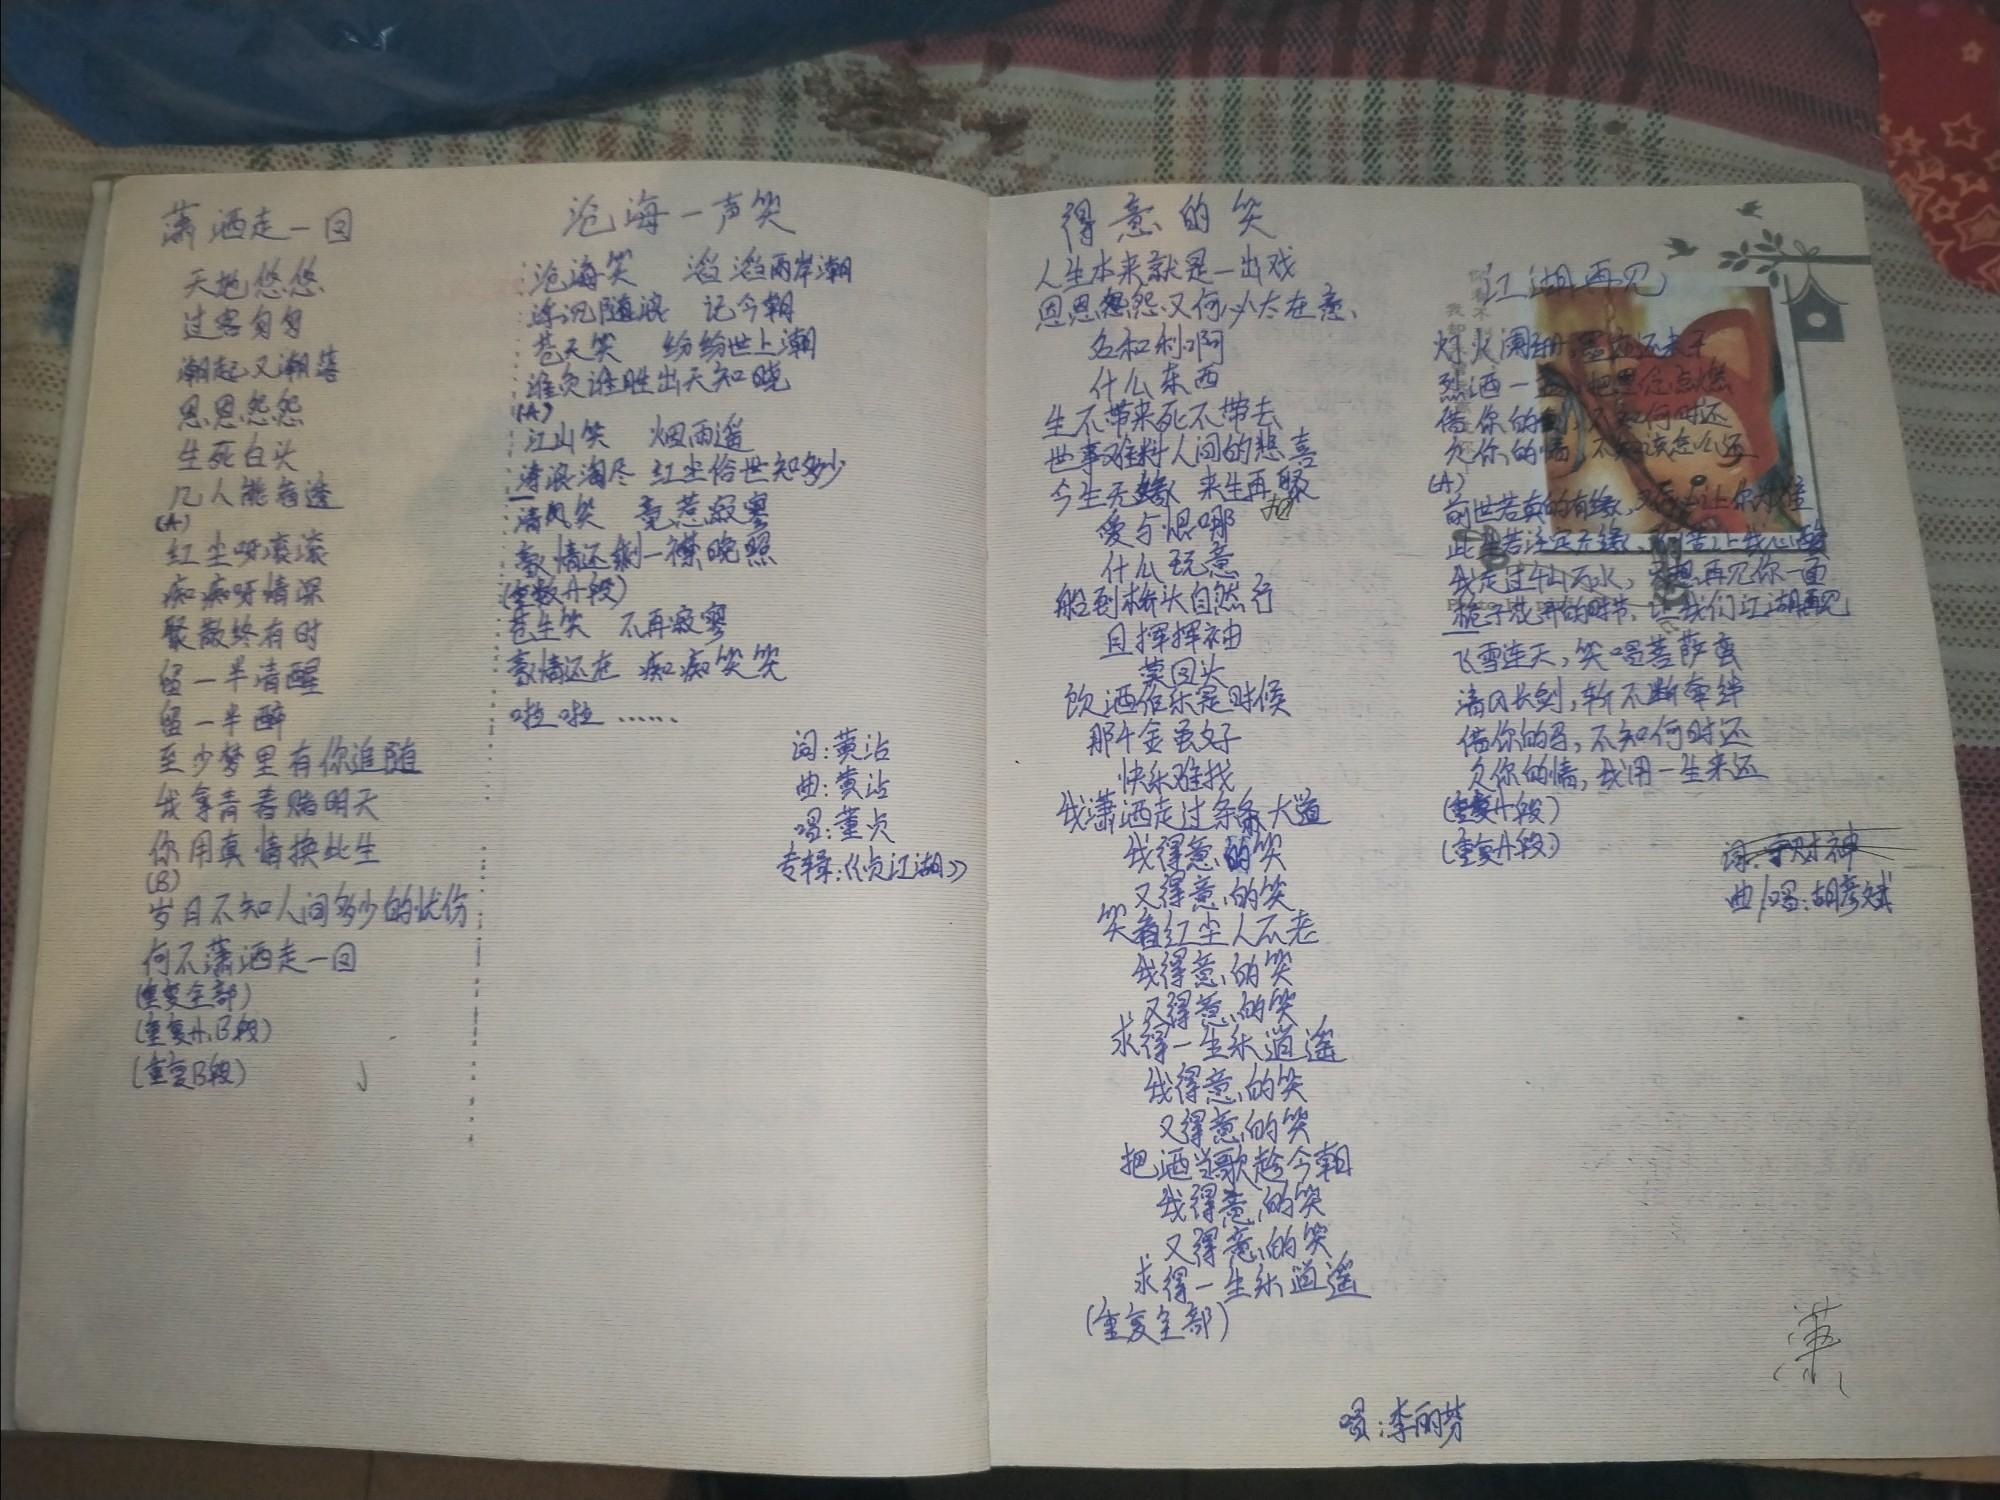 潇洒走一回
天地悠悠
过客匆匆
潮起又潮落
恩恩怨怨
生死白头
几人能看透
(A)
红尘呀滚滚
痴痴呀情深
聚散终有时
留一半清醒
留一半醉
至少梦里有你追随
我拿青春赌明天
你用真情换此生
(B)
岁月不知人间多少的忧伤
何不潇洒走一回
(重复全部)
(重复A、B段)
(重复B段)
沧海一声笑
沧海笑 滔滔两岸潮
浮沉随浪 记今朝
苍天笑 纷纷世上潮
谁负谁胜出天知晓
(A)
江山笑 烟雨遥
涛浪淘尽 红尘俗世知多少
清风笑 竟惹寂寥
豪情还剩一襟晚照
(重复A段)
苍生笑 不再寂寥
豪情还在 痴痴笑笑
啦啦……
词:黄沾
曲:黄沾
唱:董贞
专辑:《贞江湖》
得意的笑
人生本来就是一出戏
恩恩怨怨又何必太在意
名和利啊
什么东西
生不带来死不带去
世事难料人间的悲喜
今生无缘 来生再聚
爱与恨哪
什么玩意
船到桥头自然行
且挥挥袖
莫回头
饮酒作乐是时候
那千金虽好
快乐难找
我潇洒走过条条大道
我得意的笑
又得意的笑
笑看红尘人不老
我得意的笑
又得意的笑
求得一生乐逍遥
我得意的笑
又得意的笑
把酒当歌趁今朝
我得意的笑
又得意的笑
求得一生乐逍遥
(重复全部)
唱:李丽芬
江湖再见
灯火阑珊,
烈酒一 把思念点燃
借你的 ,不知何时还
欠你的情,不知该怎么还
(A)
前世若真的有缘, 让你为难
此生若注定无缘, 让我心酸
我走过千山万水,只想再见你一面
栀子花开的时节,让我们江湖再见
飞雪连天,笑唱菩萨蛮
清风长剑,斩不断牵绊
借你的马,不知何时还
欠你的情,我用一生来还
(重复A段)
(重复A段)
词: 财神
曲/唱:胡彦斌